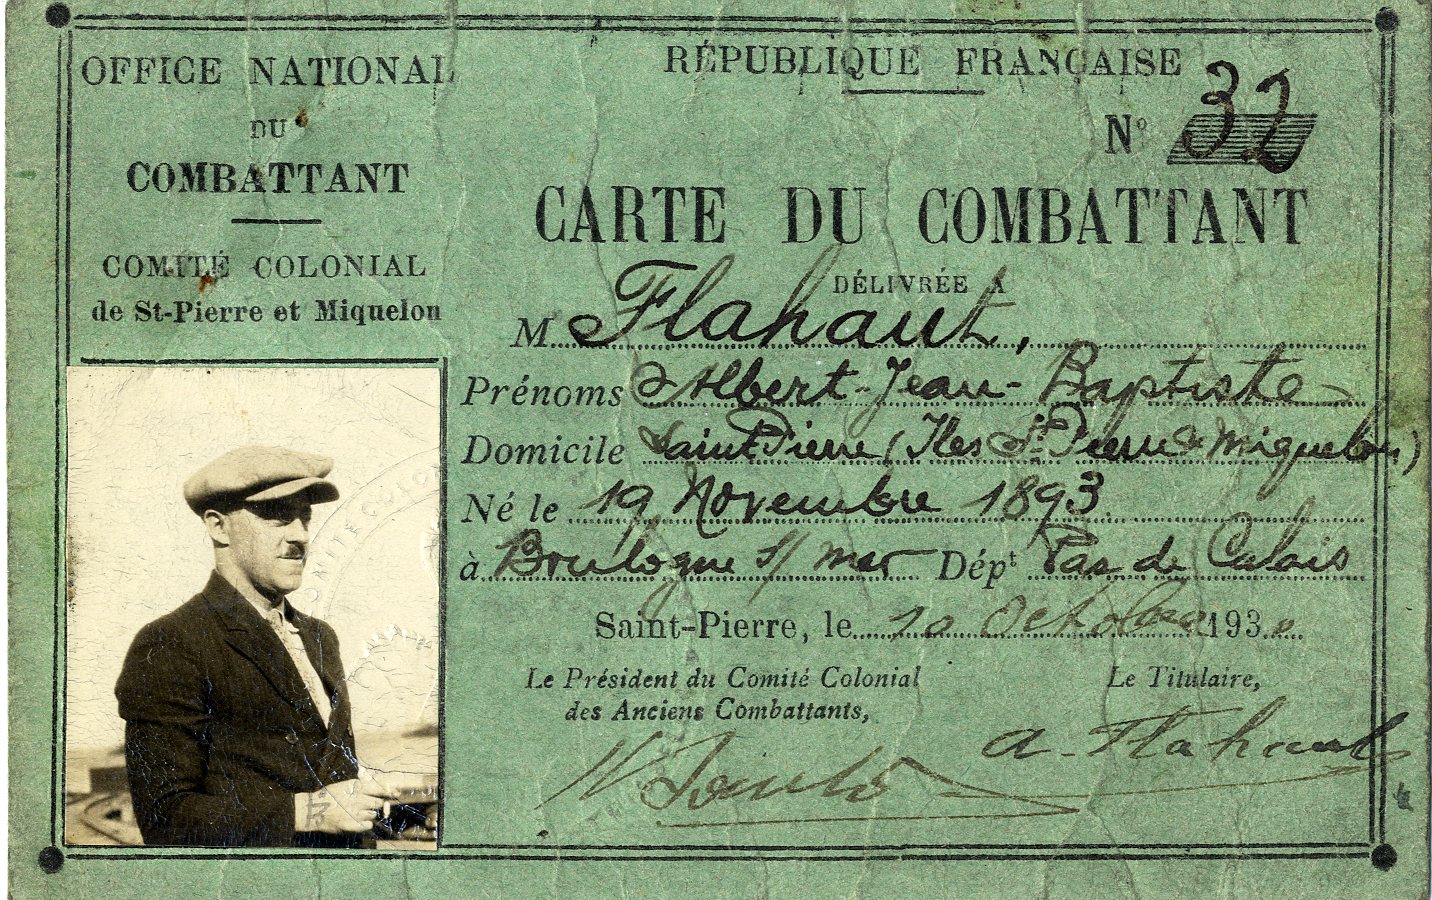 OFFICE NATIONAL
DU
COMBATTANT
COMITÉ COLONIAL
de St-Pierre et Miquelon
RÉPUBLIQUE FRANÇAISE
N° 32
CARTE DU COMBATTANT
DÉLIVRÉE A
M Flahaut,
Prénoms Albert-Jean-Baptiste
Domicile Saint Pierre (Iles St Pierre & Miquelon)
Né le 19 Novembre 1893
à Boulogne s/ mer Dépt Pas de Calais
Saint-Pierre, le 10 Octobre 1930
Le Président du Comité Colonial
des Anciens Combattants,
Le Titulaire,
a. Flahaut
COMITÉ COLON